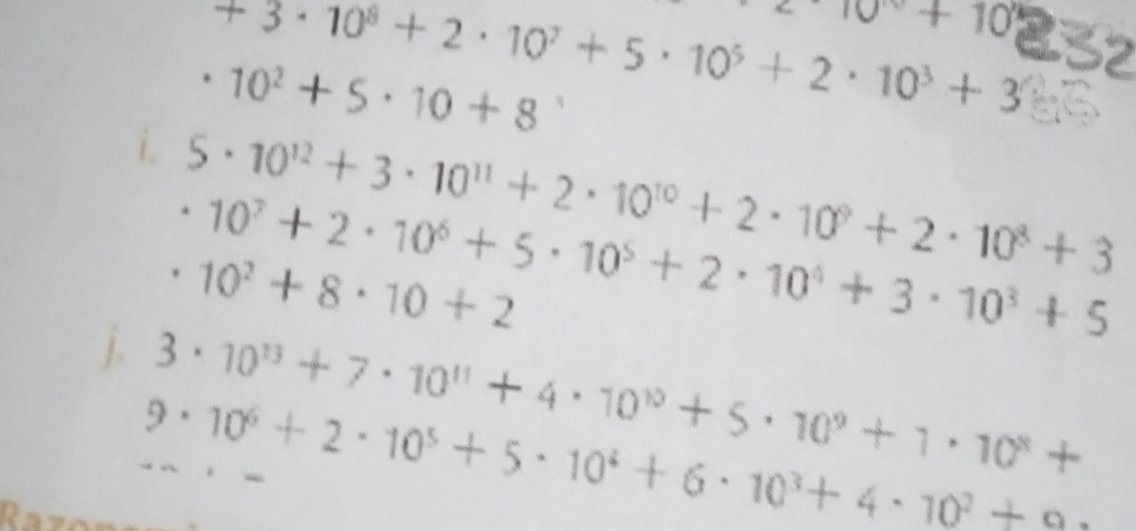 2 · 10¹⁰ + 10⁹
+ 3 · 10⁸ + 2 · 10⁷ + 5 · 10⁵ + 2 · 10³ + 3
232
· 10² + 5 · 10 + 8
i. 5 · 10¹² + 3 · 10¹¹ + 2 · 10¹⁰ + 2 · 10⁹ + 2 · 10⁸ + 3
· 10⁷ + 2 · 10⁶ + 5 · 10⁵ + 2 · 10⁴ + 3 · 10³ + 5
· 10² + 8 · 10 + 2
j. 3 · 10¹³ + 7 · 10¹¹ + 4 · 10¹⁰ + 5 · 10⁹ + 1 · 10⁸ +
9 · 10⁶ + 2 · 10⁵ + 5 · 10⁴ + 6 · 10³ + 4 · 10² +